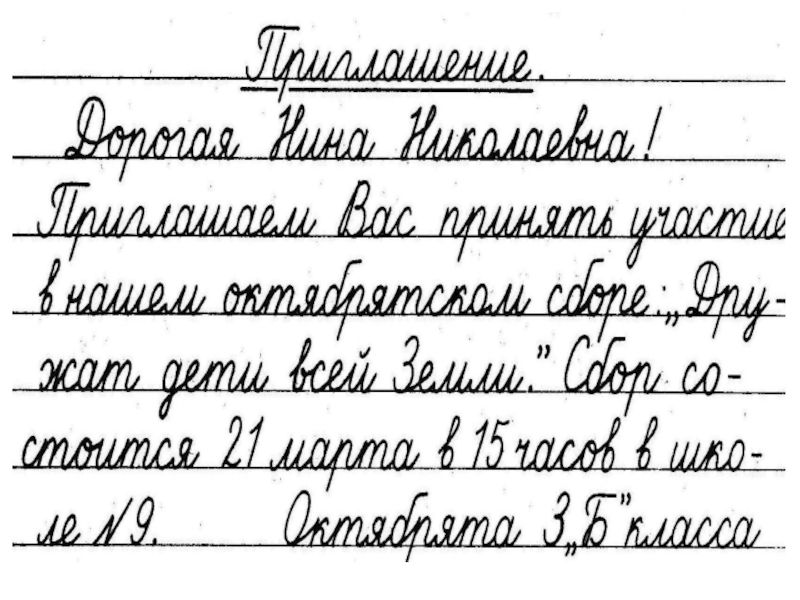 Приглашение.
Дорогая Нина Николаевна!
Приглашаем Вас принять участие
в нашем октябрятском сборе: „Дру-
жат дети всей Земли.” Сбор со-
стоится 21 марта в 15 часов в шко-
ле №9. Октябрята 3 „Б” класса